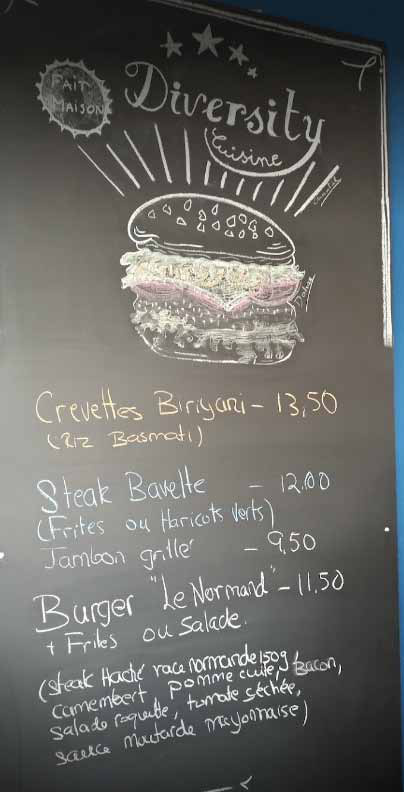 FAIT
MAISON
Diversity
Cuisine
Crevettes Biriyani - 13,50
(Riz Basmati)
Steak Bavette - 12.00
(Frites ou Haricots verts)
Jambon grillé - 9,50
Burger "Le Normand" - 11,50
+ Frites ou Salade.
(Steak Haché race normande 150g,
Camembert, pomme cuite, Bacon,
Salade roquette, tomate séchée,
sauce moutarde mayonnaise)